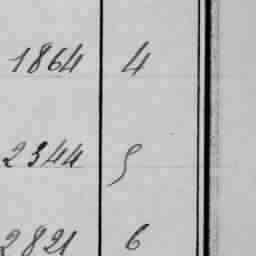 1864 4
2344 5
2821 6